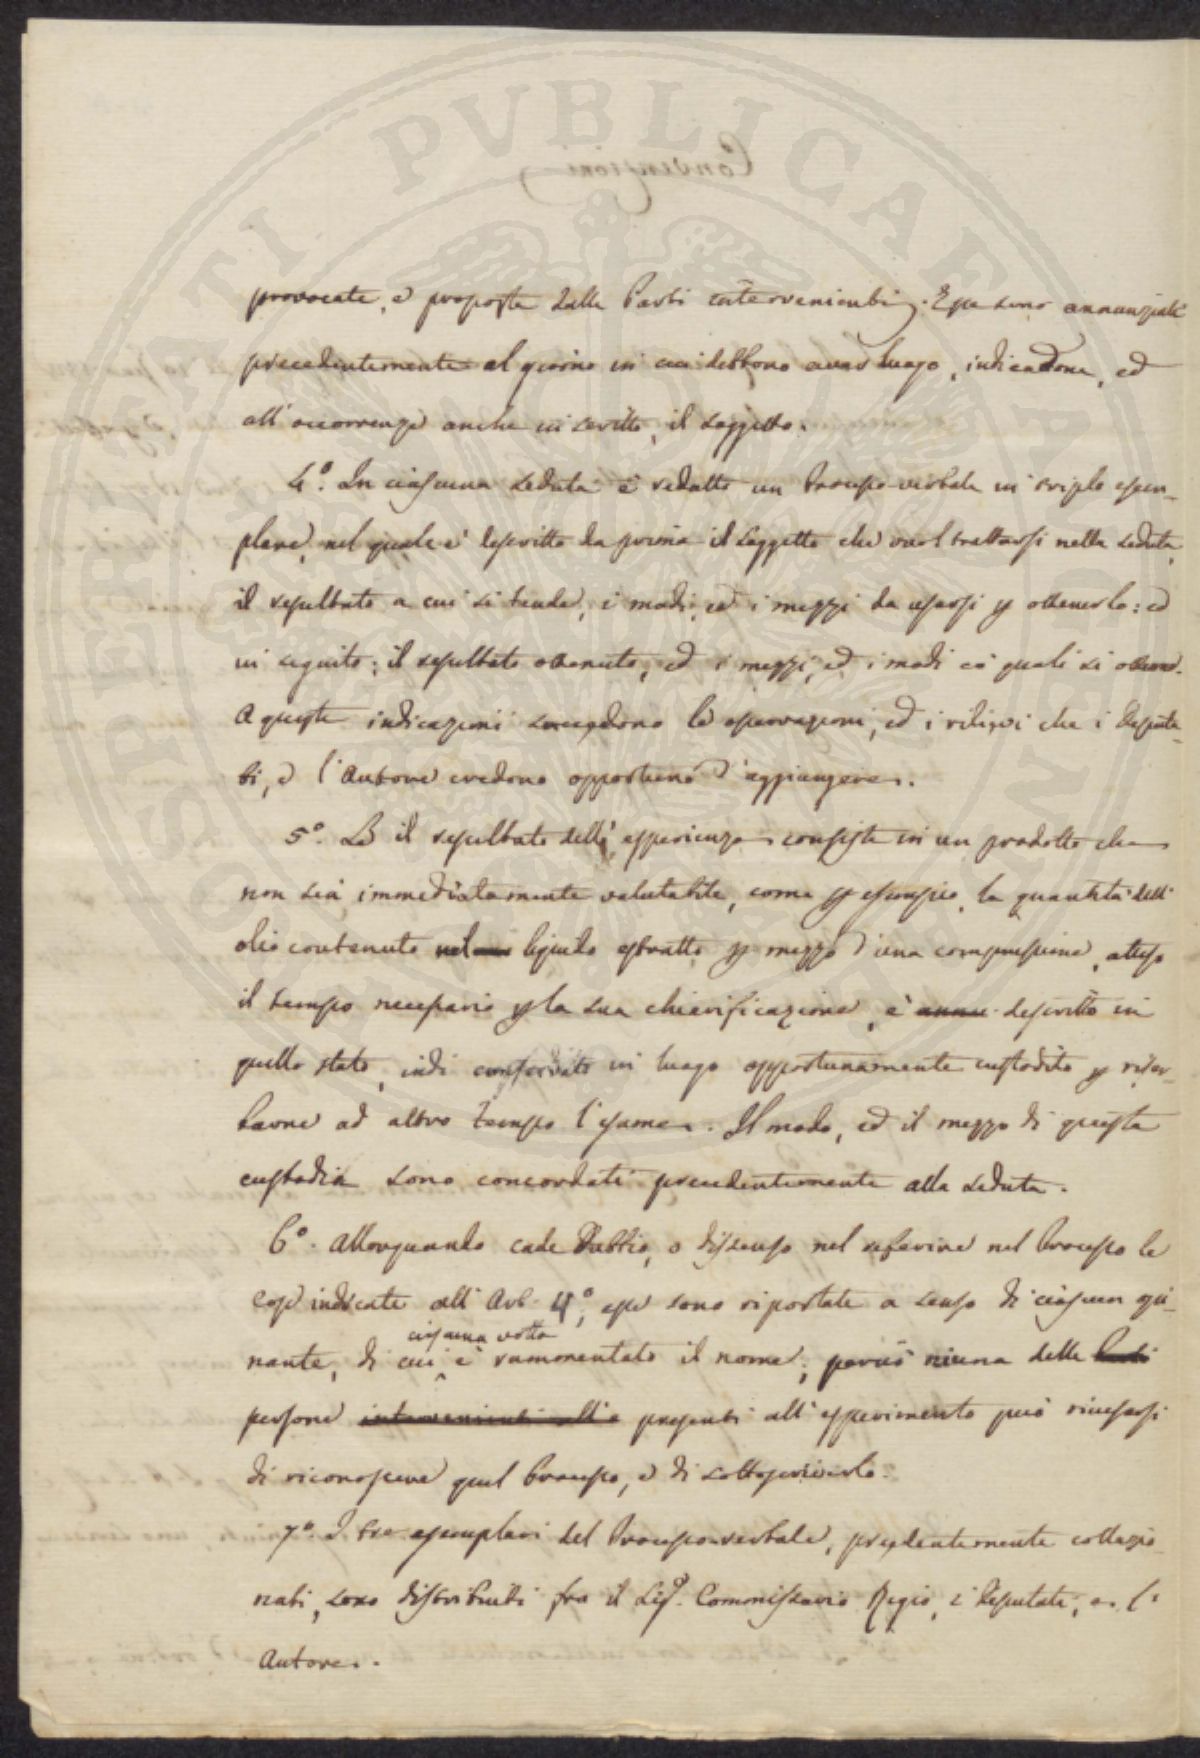 provocate, e proposte dalle Parti intervenienti. Esse sono annunziate
precedentemente al giorno in cui debbono aver luogo, indicandone, ed
all'occorrenza anche in scritto, il soggetto.
4.° In ciascuna seduta è redatto un Processo-verbale in triplo esem-
plare, nel quale è descritto da prima il soggetto che vuol trattarsi nella seduta,
il resultato a cui si tende, i modi, ed i mezzi da usarsi p ottenerlo: ed
in seguito: il resultato ottenuto, ed i mezzi, ed i modi co' quali si ottenne.
A queste indicazioni succedono le osservazioni, ed i rilievi che i Deputa-
ti, e l'Autore credono opportuno d'aggiungere.
5.° Se il resultato dell'esperienza consiste in un prodotto che
non sia immediatamente valutabile, come p esempio, la quantità dell'
olio contenuto nel liquido estratto p mezzo d'una compressione, atteso
il tempo necessario p la sua chiarificazione, è descritto in
quello stato, indi conservato in luogo opportunamente custodito p riser-
barne ad altro tempo l'esame. Il modo, ed il mezzo di questa
custodia sono concordati precedentemente alla seduta.
6.° Allorquando cade dubbio, o dissenso nel referire nel Processo le
cose indicate all'Art. 4.°, esse sono riportate a senso di ciascun opi-
ciascuna volta
nante, di cui è rammentato il nome; perciò niuna delle Parti
persone intervenienti all'e presenti all'esperimento può ricusarsi
di riconoscere quel Processo, e di sottoscriverlo.
7.° I tre esemplari del Processo-verbale, precedentemente collazio-
nati, sono distribuiti fra il Sig. Commissario Regio, i Deputati, e l'
Autore.
PERITATI PVBLICAE
Convenzioni